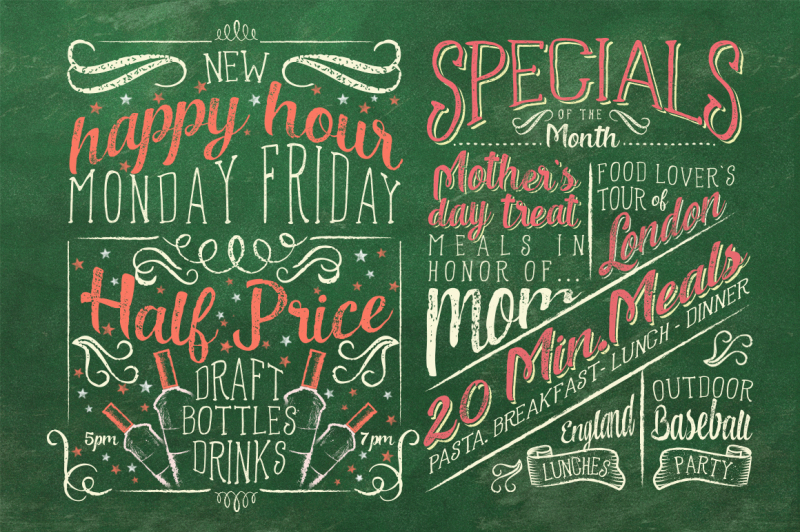 NEW
happy hour
MONDAY FRIDAY
Half Price
DRAFT
BOTTLES
DRINKS
5pm
7pm
SPECIALS
OF THE
Month
Mother's
day treat
MEALS IN
HONOR OF...
Mom
FOOD LOVER'S
TOUR of
London
20 Min. Meals
PASTA. BREAKFAST - LUNCH - DINNER
England
LUNCHES
OUTDOOR
Baseball
PARTY